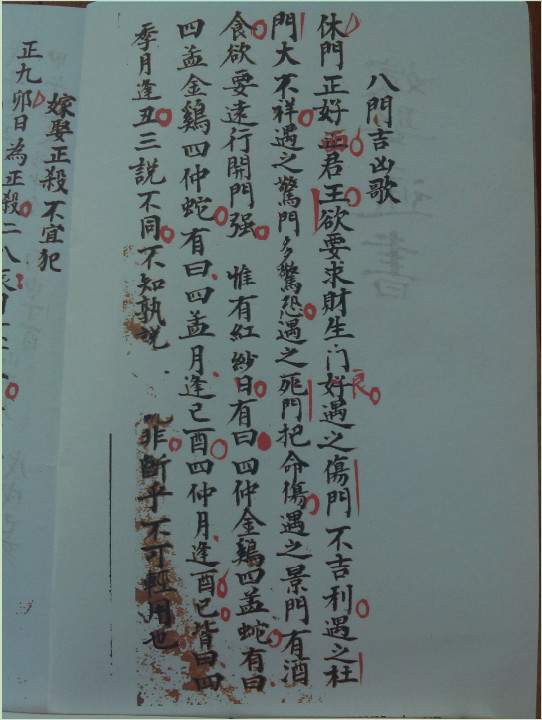 八門吉凶歌
休門正好正君王欲要求財生门好良遇之傷門不吉利遇之杜
門大不祥遇之驚門多驚恐遇之死門把命傷遇之景門有酒
食欲要遠行開門强 惟有紅紗日有曰四仲金鷄四孟蛇有曰
四孟金鷄四仲蛇有曰四孟月逢已酉四仲月逢酉已皆曰四
季月逢丑三說不同不知孰說 非断乎不可輕用也
嫁娶正殺不宜犯
正九卯日為正殺二八辰